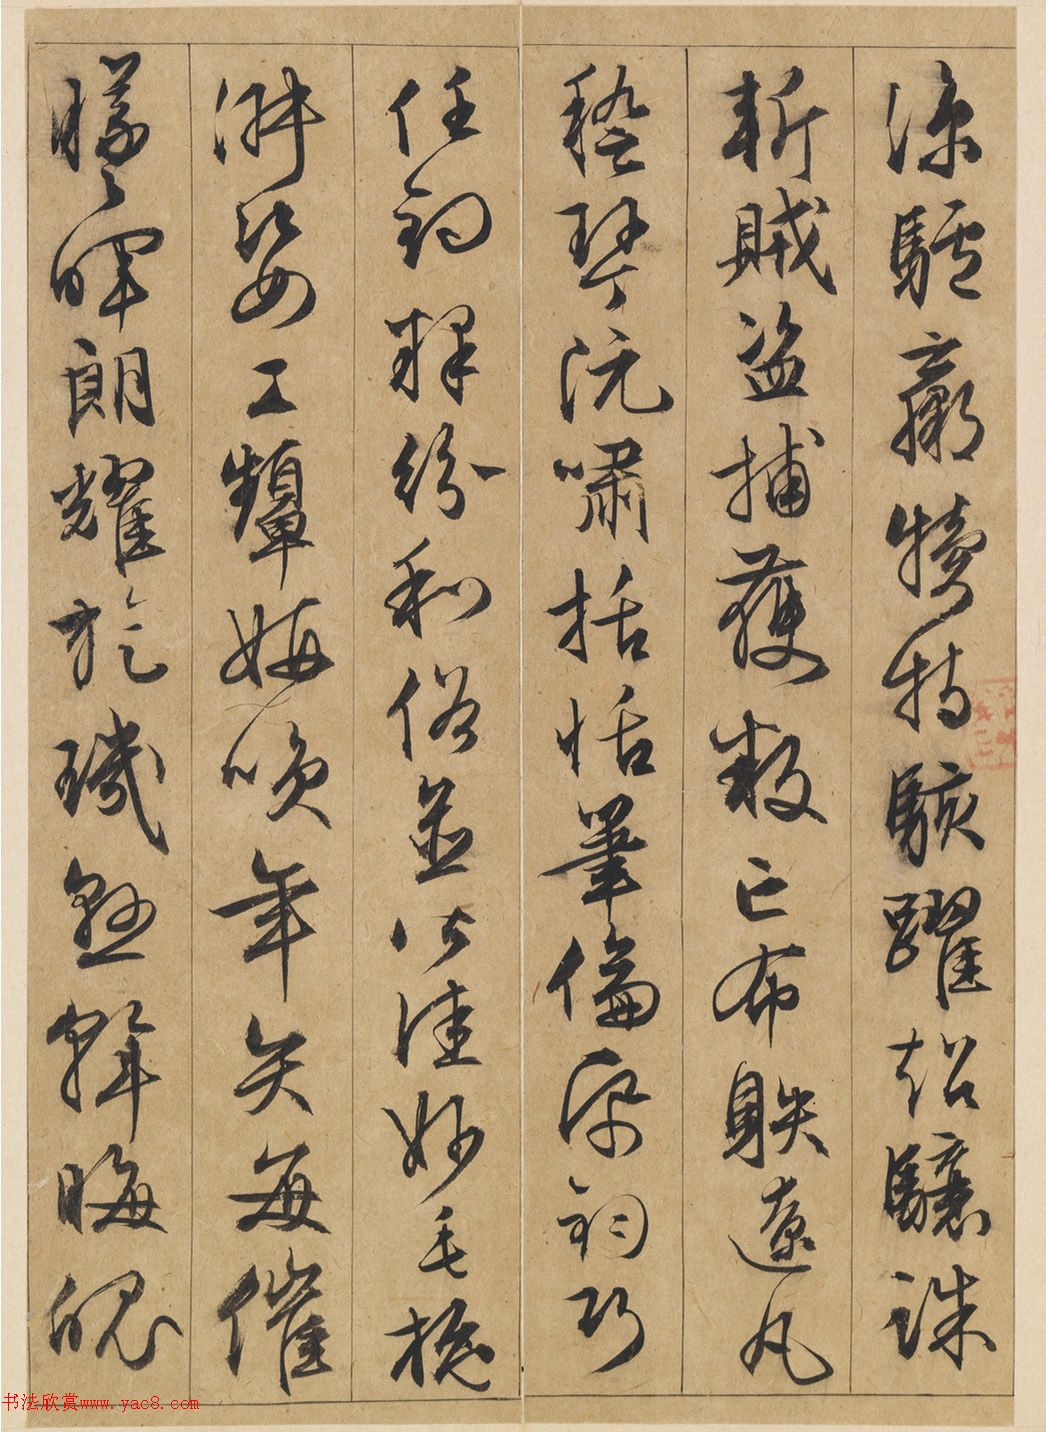 涼驢驘犢特駭躍超驤誅
斬賊盜捕獲叛亡布射遼丸
嵇琴阮嘯括恬筆倫帋鈞巧
任釣釋紛利俗並皆佳妙毛施
淑姿工顰妍咲年矢每催
曦暉朗耀旋璣懸斡晦魄
书法欣赏www.yac8.com